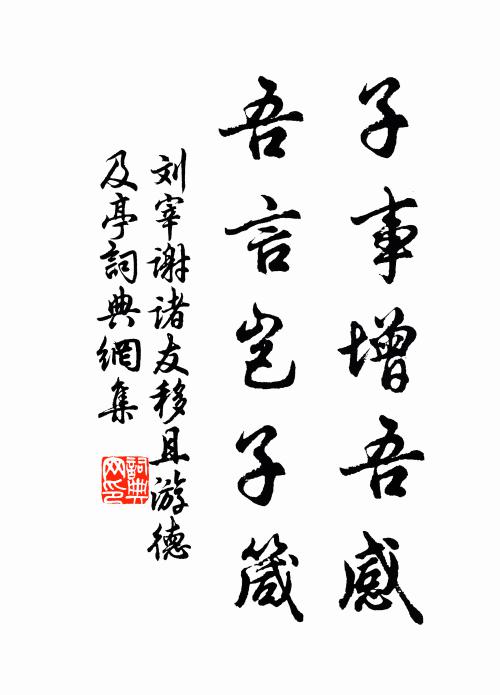 子事增吾感
吾言岂子箴
刘宰谢诸友移且游德
及亭詞典網集
詞典
网印